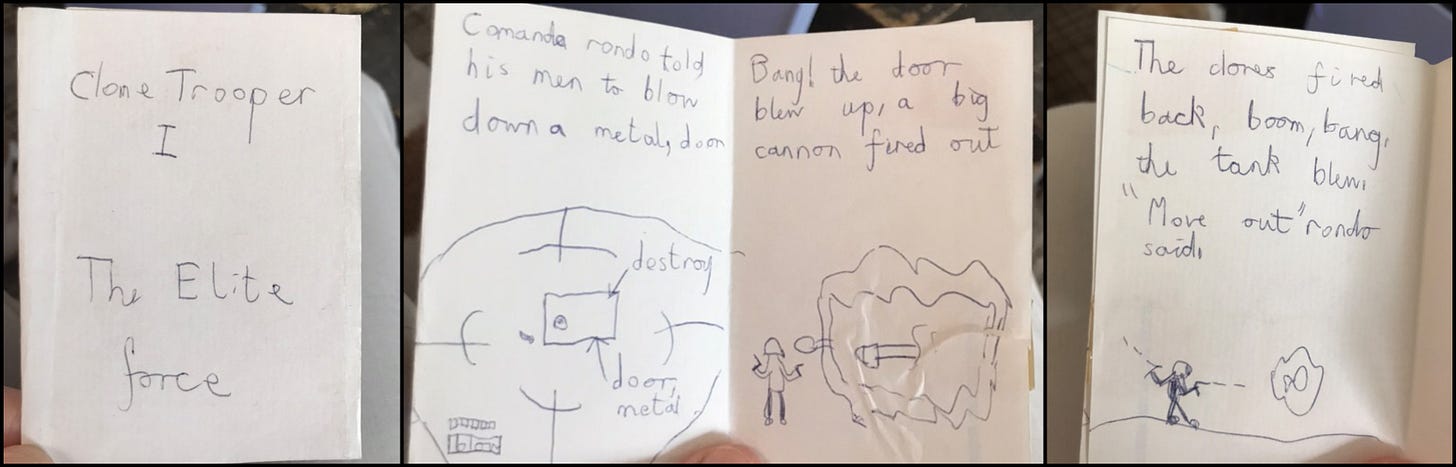 Clone Trooper
I
The Elite
force
Comanda rondo told
his men to blow
down a metal, door
destroy
door,
metal
Bang! the door
blew up, a big
cannon fired out
The clones fired
back, boom, bang,
the tank blew.
"Move out" rondo
said,